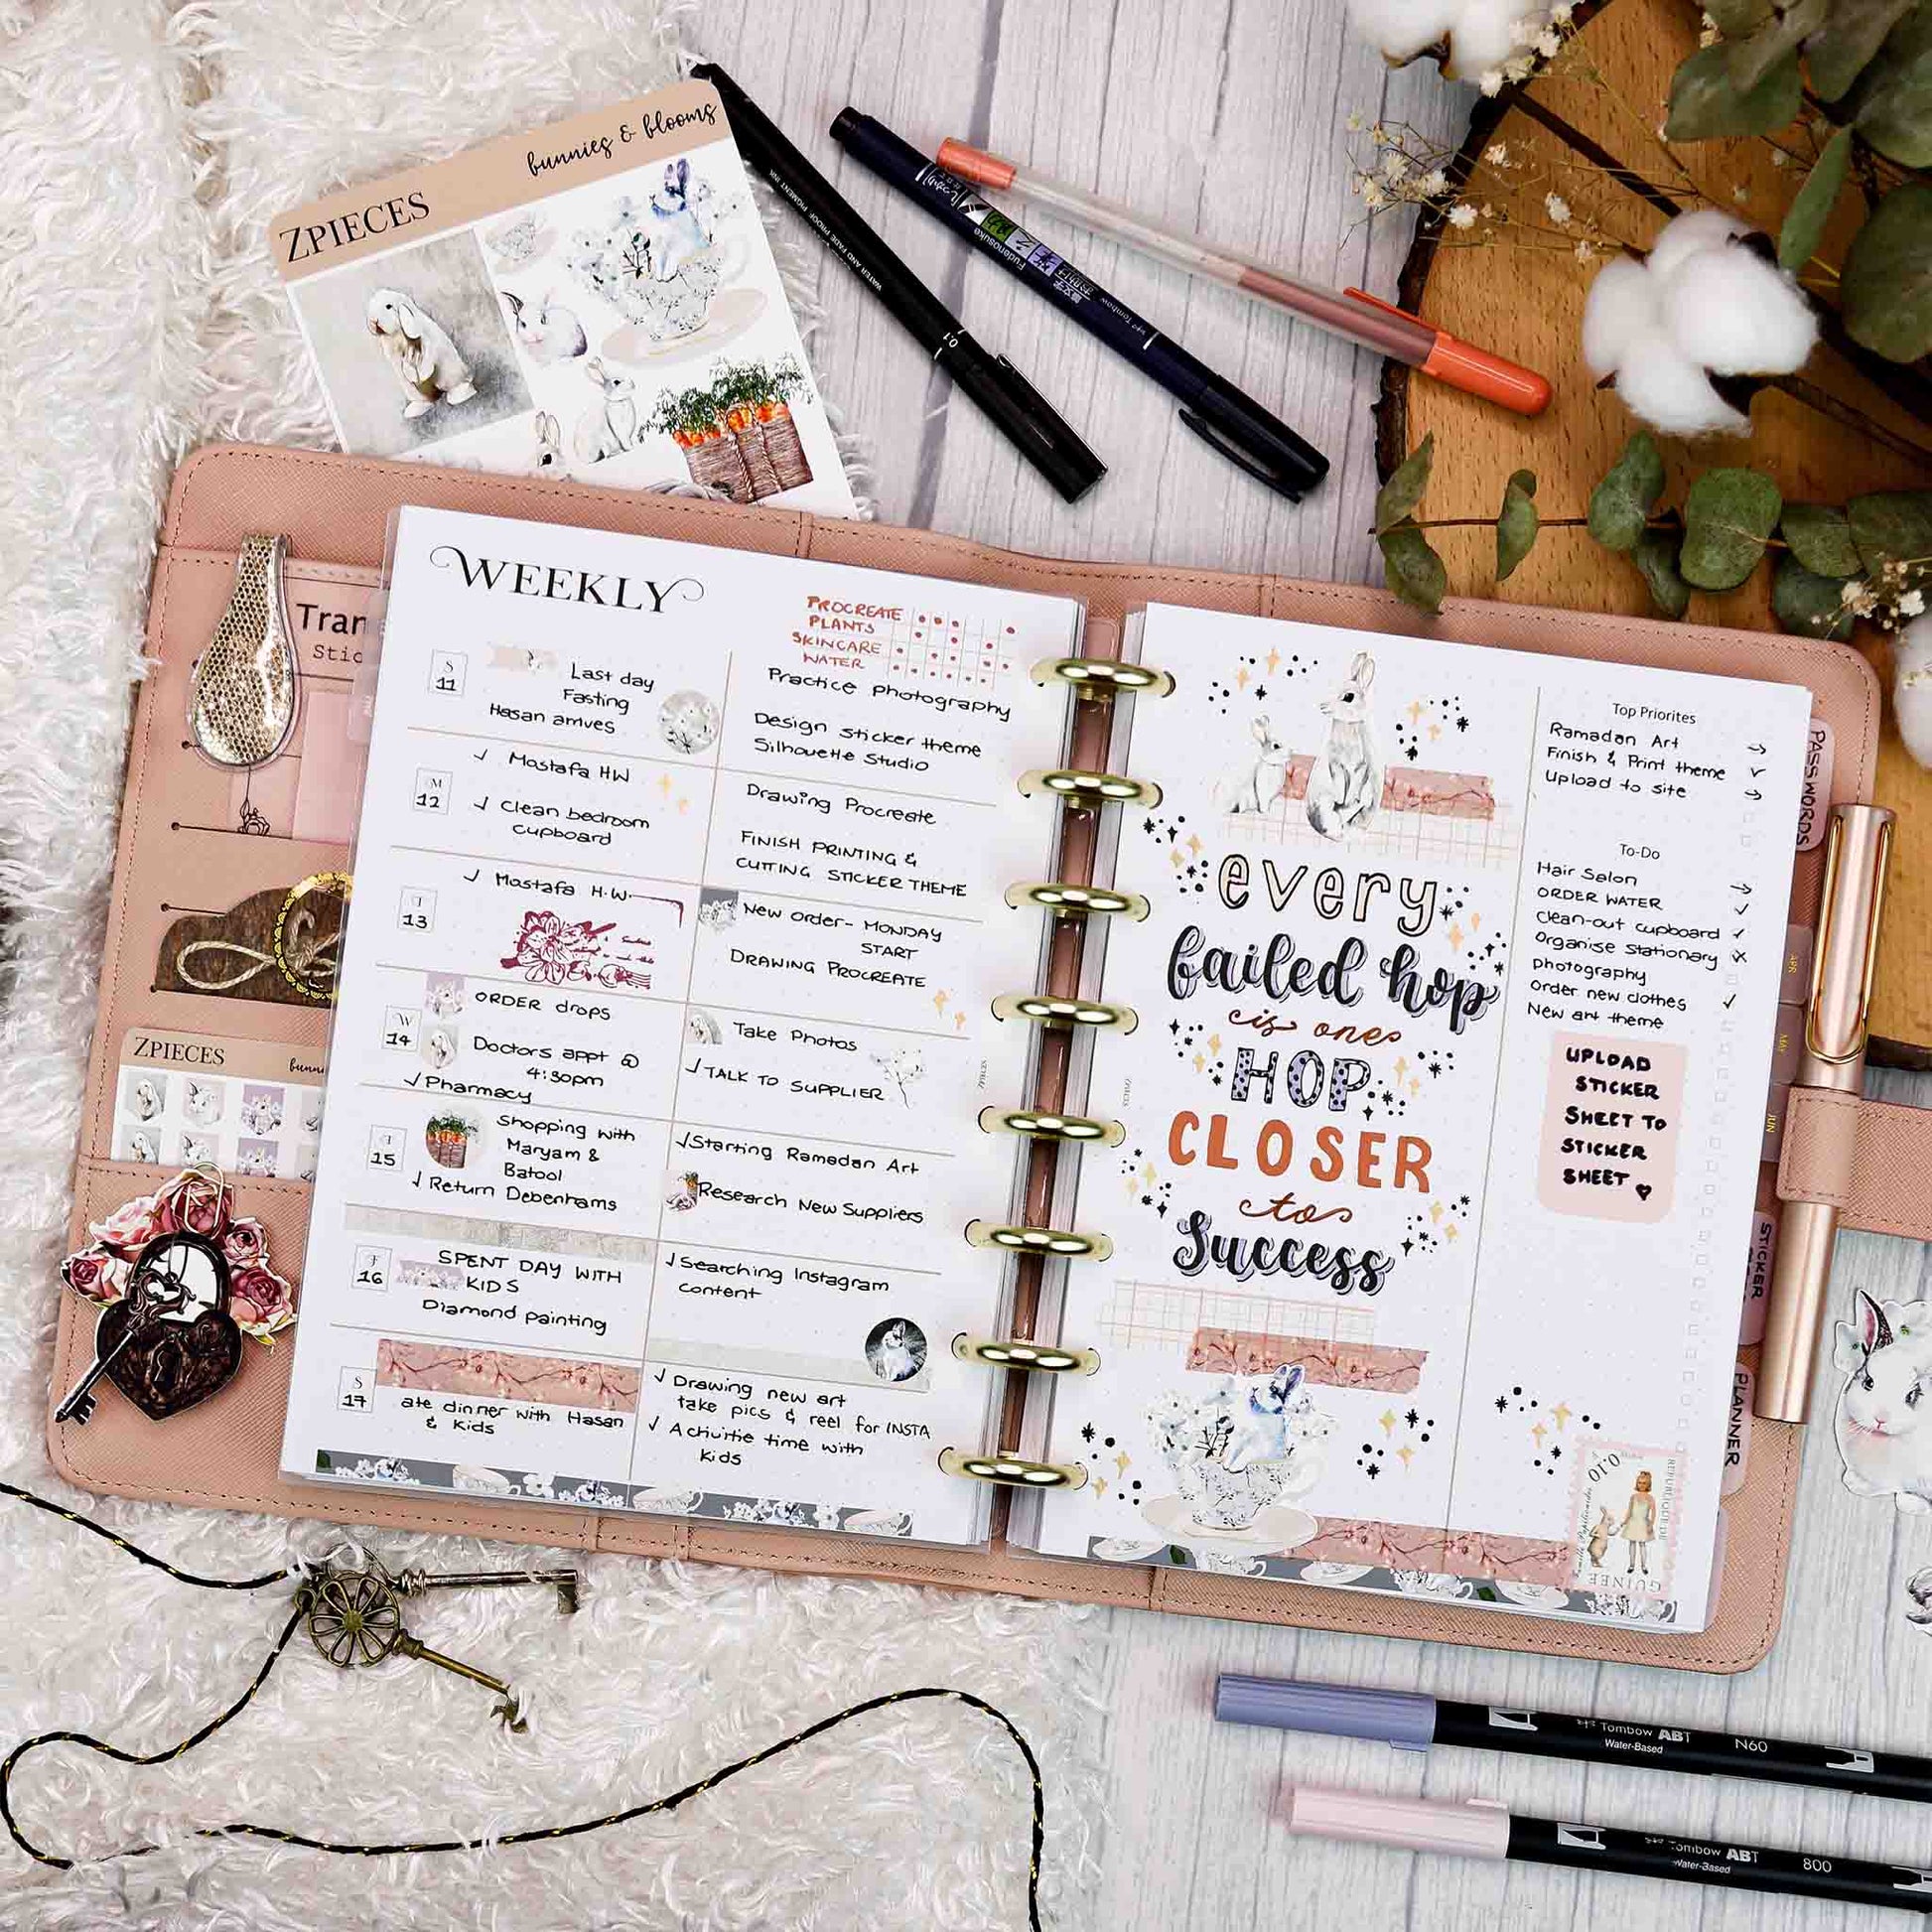 bunnies & blooms
ZPIECES
WATER AND FADE PROOF, PIGMENT INK
0.1
Fudenosuke
Tombow
WEEKLY
PROCREATE
PLANTS
SKINCARE
WATER
Tran
Stic
S
11
Last day
Fasting
Hasan arrives
Practice photography
Design sticker theme
Silhouette Studio
M
12
✓ Mostafa HW
✓ Clean bedroom
cupboard
Drawing Procreate
FINISH PRINTING &
CUTTING STICKER THEME
T
13
✓ Mostafa H.W.
New order- MONDAY
START
DRAWING PROCREATE
W
14
ORDER drops
Doctors appt @
4:30pm
✓Pharmacy
Take Photos
✓TALK TO SUPPLIER
T
15
Shopping with
Maryam &
Batool
✓ Return Debenhams
✓Starting Ramadan Art
Research New Suppliers
F
16
SPENT DAY WITH
KIDS
Diamond painting
✓Searching Instagram
content
S
17
ate dinner with Hasan
& Kids
✓ Drawing new art
take pics & reel for INSTA
✓ Activitie time with
Kids
ZPIECES
bunni
every
failed hop
is one
HOP
CLOSER
to
Success
Top Priorites
Ramadan Art →
Finish & Print theme ✓
Upload to site →
To-Do
Hair Salon →
ORDER WATER ✓
Clean-out cupboard ✓
Organise Stationary x
Photography
Order new clothes ✓
New art theme
UPLOAD
STICKER
SHEET TO
STICKER
SHEET ♥
0.10
GUINEE
PASSWORDS
APR
MAY
JUN
STICKER
PLANNER
Tombow ABT
Water-Based
N60
Tombow ABT
Water-Based
800